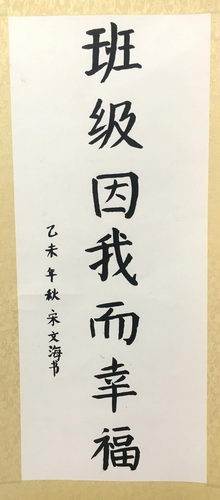 班级因我而幸福
乙未年秋宋文海书